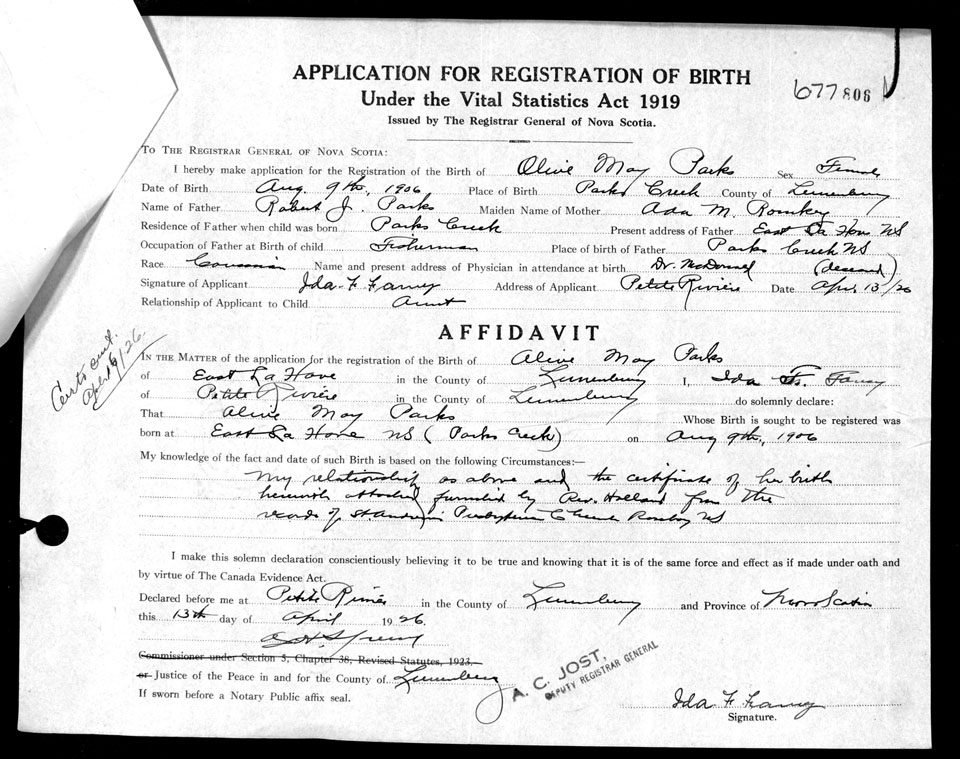 APPLICATION FOR REGISTRATION OF BIRTH
677 806
Under the Vital Statistics Act 1919
Issued by The Registrar General of Nova Scotia.
To The Registrar General of Nova Scotia:
I hereby make application for the Registration of the Birth of Olive May Parks Sex Female
Date of Birth Aug. 9th, 1906 Place of Birth Parks Creek County of Lunenburg
Name of Father Robert J. Parks Maiden Name of Mother Ada M. Romkey
Residence of Father when child was born Parks Creek Present address of Father East La Have NS
Occupation of Father at Birth of child Fisherman Place of birth of Father Parks Creek NS
Race Name and present address of Physician in attendance at birth Dr. McDonald (deceased)
Signature of Applicant Ida F Fancy Address of Applicant Petite Rivière Date Apr 13/26
Relationship of Applicant to Child Aunt
AFFIDAVIT
Certs out.
April 16/26.
In the Matter of the application for the registration of the Birth of Olive May Parks
of East La Have in the County of Lunenburg I, Ida F. Fancy
of Petite Rivière in the County of Lunenburg do solemnly declare:
That Olive May Parks Whose Birth is sought to be registered was
born at East La Have NS (Parks Creek) on Aug 9th, 1906
My knowledge of the fact and date of such Birth is based on the following Circumstances:—
My relationship as above and the certificate of her birth
herewith attached furnished by Rev. Holland from the
records of St. Andrew's Presbyterian Church NS
I make this solemn declaration conscientiously believing it to be true and knowing that it is of the same force and effect as if made under oath and
by virtue of The Canada Evidence Act.
Declared before me at Petite Rivière in the County of Lunenburg and Province of Nova Scotia
this 13th day of April 1926.
Commissioner under Section 5, Chapter 38, Revised Statutes, 1923,
or Justice of the Peace in and for the County of Lunenburg
A. C. JOST,
DEPUTY REGISTRAR GENERAL
If sworn before a Notary Public affix seal.
Ida F Fancy
Signature.